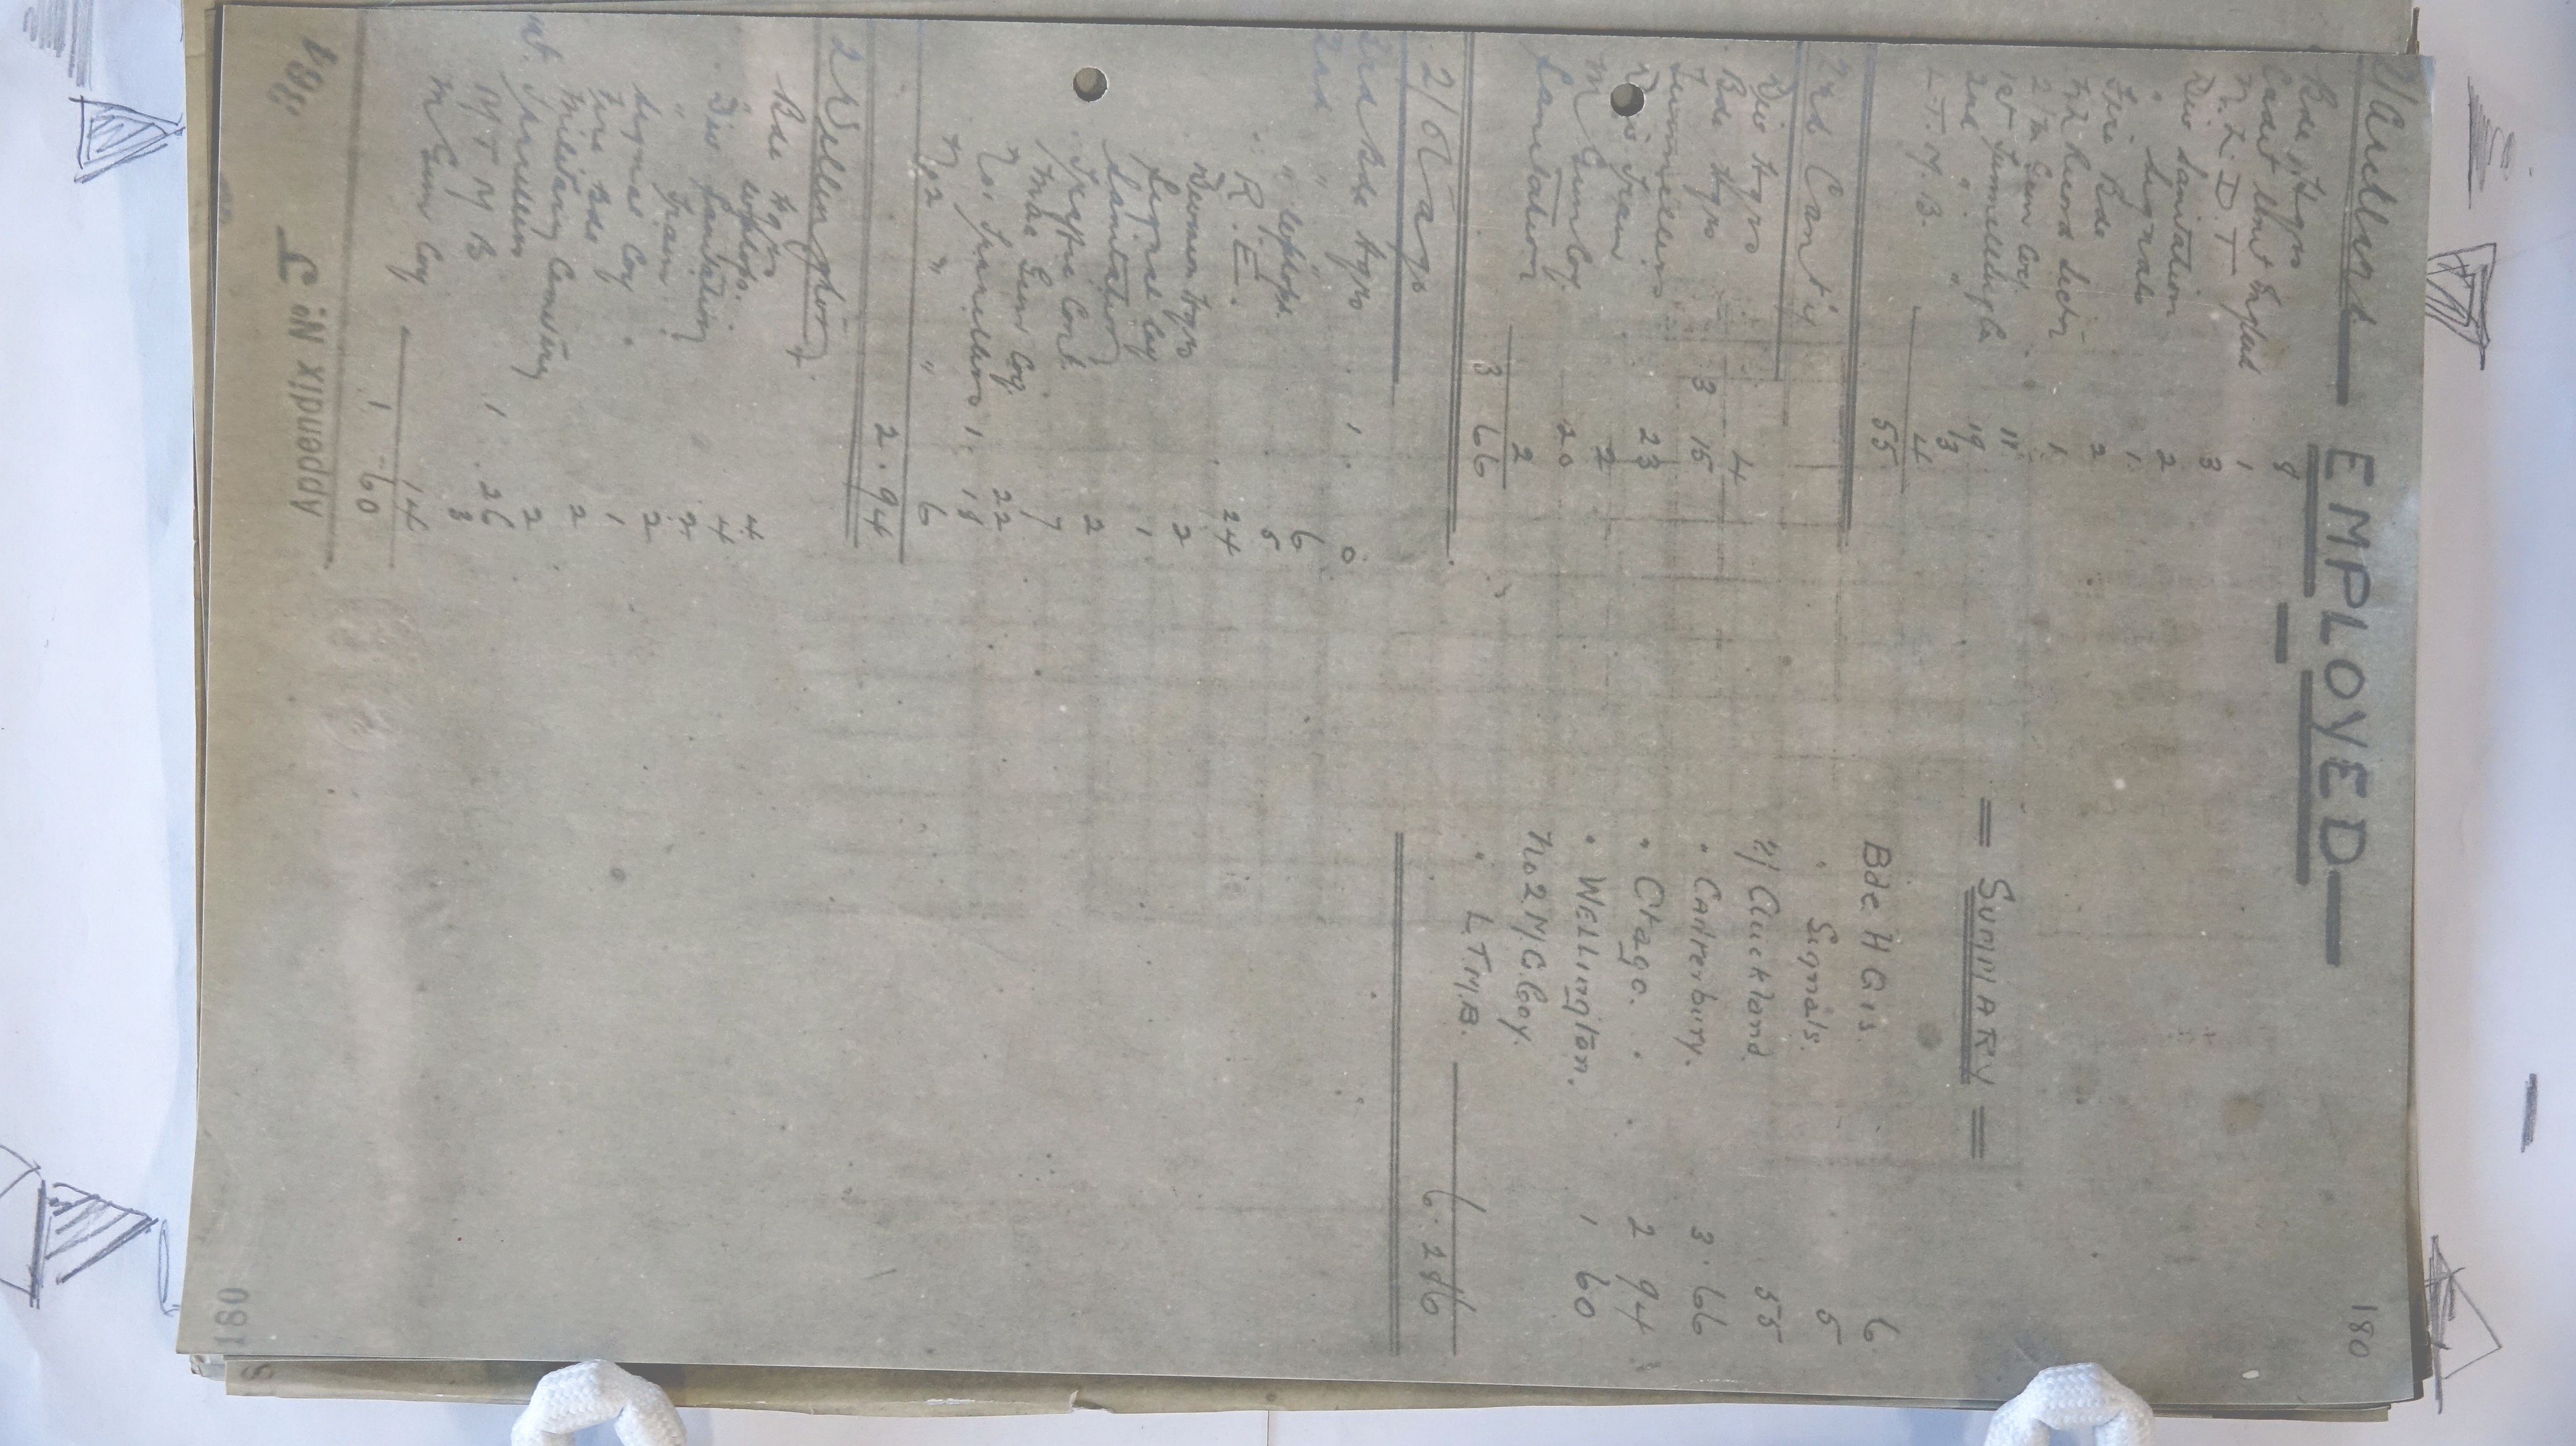 180
EMPLOYED
2/Auckland
Bde Hqrs 8
Cadet Unit England 1
N.Z.D.T 3
Div Sanitation 2
" Signals 1
Fire Bde 2
NZ Record Sectn 1
2/M Gun Coy 11
1st Tunnelling Co 19
2nd " " 3
L.T.M.B. 4
55
2nd Canty
Div Hqrs 4
Bde Hqrs 3 15
Tunnellers 23
Div Train 2
M Gun Coy 20
Sanitation 2
3 66
2/Otago
2nd Bde Hqrs 1 0
2nd " " 6
" " 5
R.E. 24
Divison Hqrs 2
Signal Coy 1
Sanitation 2
Traffic Cont 7
Mac Gun Coy 22
No 1 Tunnellers 1 18
No 2 " " 6
2.94
2 Wellington
Bde Hqrs 4
4
Div Sanitation 2
" Train 2
Signal Coy 1
Fire Bde 2
Military Cemetery 2
Tunnellers 1 26
M T M B 3
M Gun Coy 14
1 60
Appendix No. J
= SUMMARY =
Bde HQrs. 6.
" Signals. 5
2/Auckland 55
" Canterbury. 3.66
" Otago. 2 94
" WELLington. 1 60
No 2 M.G. Coy.
" L.T.M.B.
6.286
180